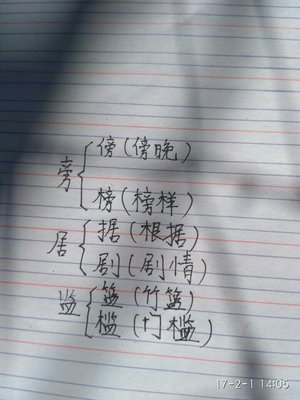 傍(傍晚)
旁
榜(榜样)
据(根据)
居
剧(剧情)
篮(竹篮)
监
槛(门槛)
17-2-1 14:05